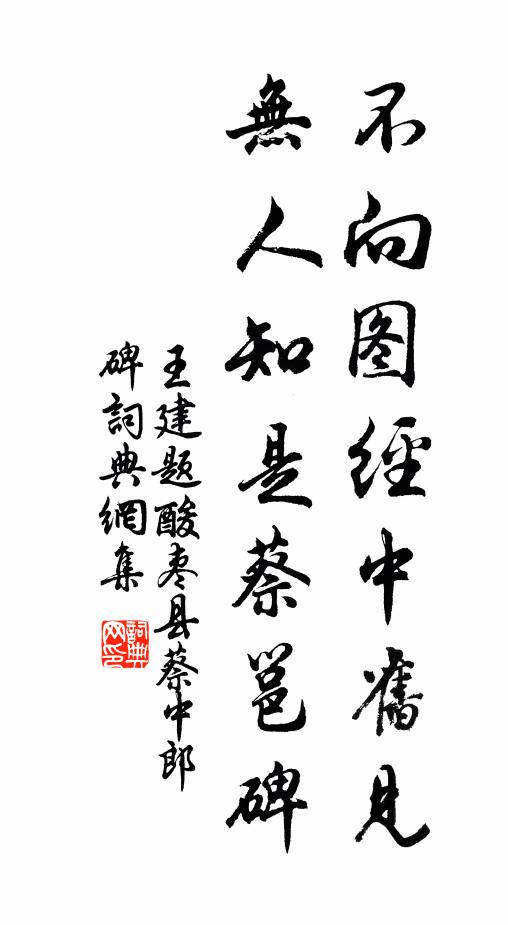 不向图經中舊見
無人知是蔡邕碑
王建题酸枣县蔡中郎
碑詞典網集
詞典网印